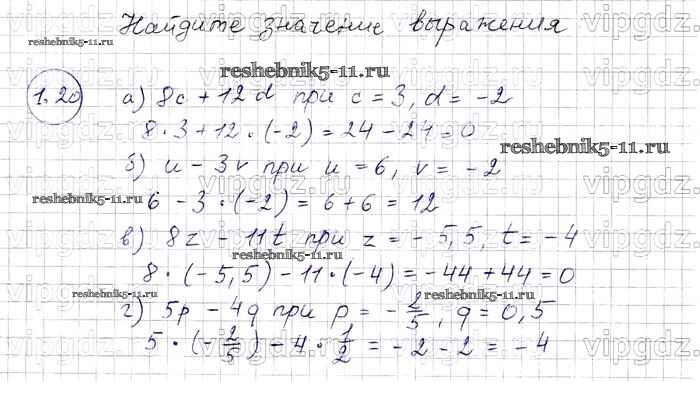 Найдите значение выражения
reshebnik5-11.ru
reshebnik5-11.ru
1.20 а) 8c + 12d при c = 3, d = -2
8 · 3 + 12 · (-2) = 24 - 24 = 0
reshebnik5-11.ru
б) u - 3v при u = 6, v = -2
reshebnik5-11.ru
6 - 3 · (-2) = 6 + 6 = 12
в) 8z - 11t при z = -5,5, t = -4
reshebnik5-11.ru
8 · (-5,5) - 11 · (-4) = -44 + 44 = 0
reshebnik5-11.ru
reshebnik5-11.ru
г) 5p - 4q при p = -2/5, q = 0,5
5 · (-2/5) - 4 · 1/2 = -2 - 2 = -4
vipgdz.ru